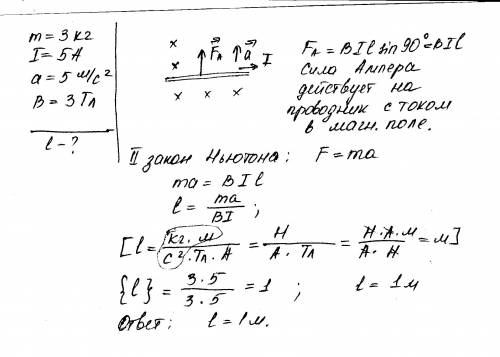 m = 3 кг
I = 5 А
a = 5 м/с²
B = 3 Тл
l - ?
x x Fₐ a I
x x x
Fₐ = BIl sin 90° = BIl
Сила Ампера
действует на
проводник с током
в магн. поле.
II закон Ньютона: F = ma
ma = BIl
l = ma/BI ;
[l = кг·м/с²·Тл·А = Н/А·Тл = Н·А·м/А·Н = м]
{l} = 3·5/3·5 = 1 ; l = 1 м
Ответ: l = 1 м.